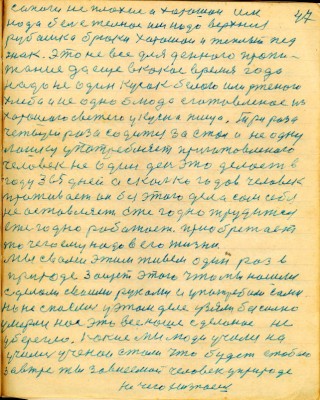 47
сапоги не плохие а хорошии им
надо белье теплое им надо верхния
рубашка брюки хорошии и теплый пед
жак. Это не все для денного пропи-
тание да еще в какое время года
надо не один кусок белово или ржаного
хлеба и не одно блюда сготовленое из
хорошого светего и кусна пища. Три раза
четыри раза садится за стол и не одну
ложку употребляет приготовленаго
человек не один ден это делает в
году 365 дней а сколко годов человек
проживает он без этого дела сам себя
не оставляет ежегодно трудится
ежегодно работает приобретает
то чего ему надо в его жизни.
Мы своим этим живем один раз в
природе за щет этого что мы нашли
сделали своими руками и употребили сами
ны не спаслись у этом деле взяли
умерли нас это все наше сделоное не
уберегло. Какие мы люди учили на
учили ученой стали что будет
завтре мы зависемой человек у природе
ни чего